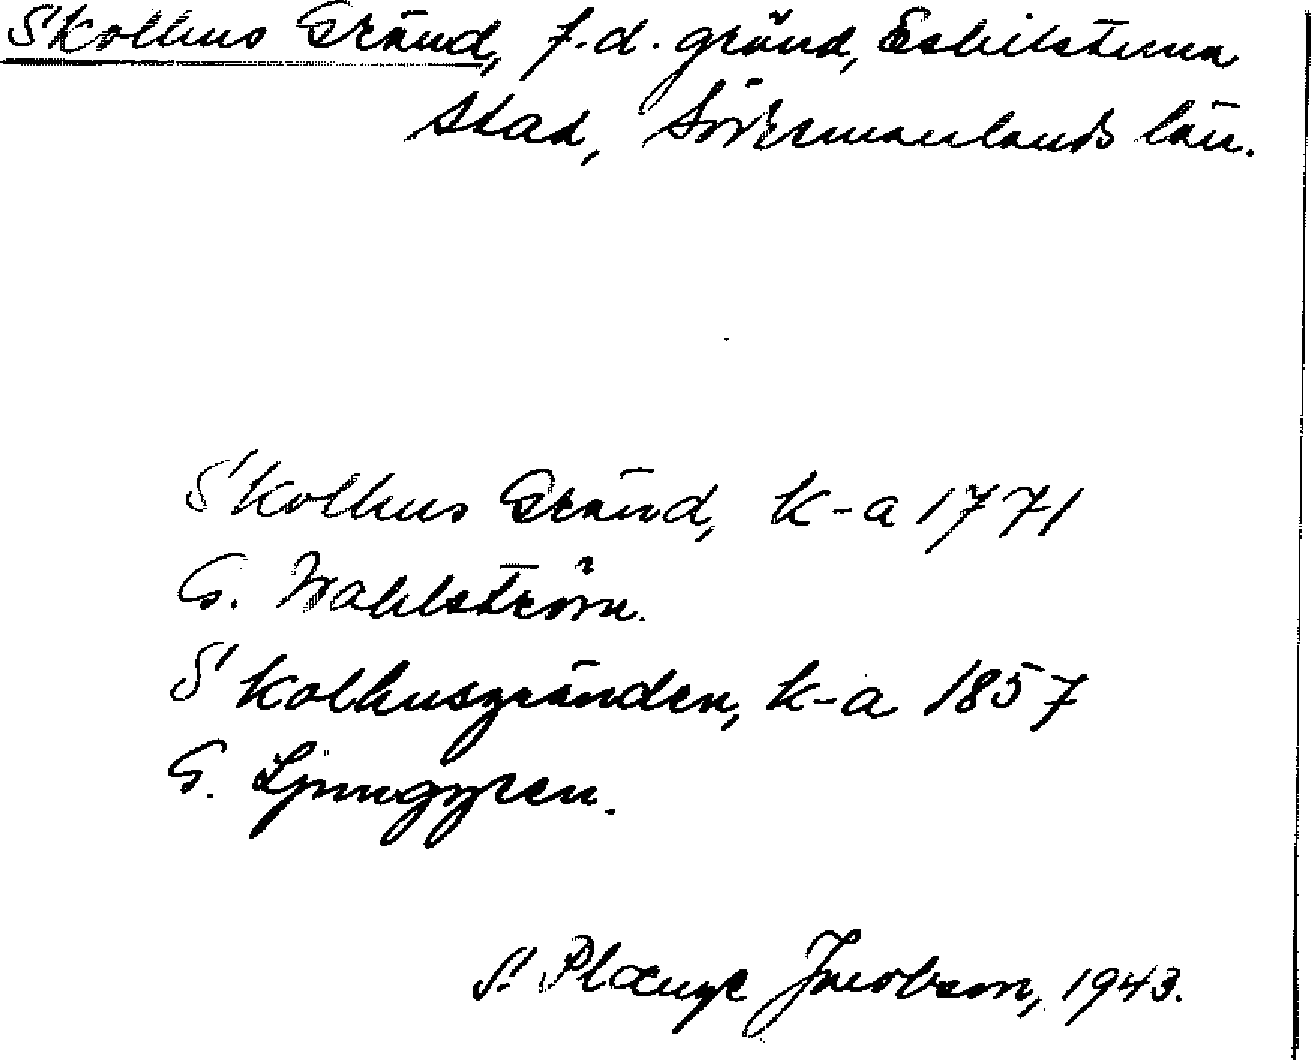 Skolhus Gränd, f.d. gränd, Eskilstuna
stad, Södermanlands län.
Skolhus Gränd, k-a 1771
G. Wahlström.
Skolhusgränden, k-a 1857
G. Ljunggren.
S. Plænge Jacobson, 1943.